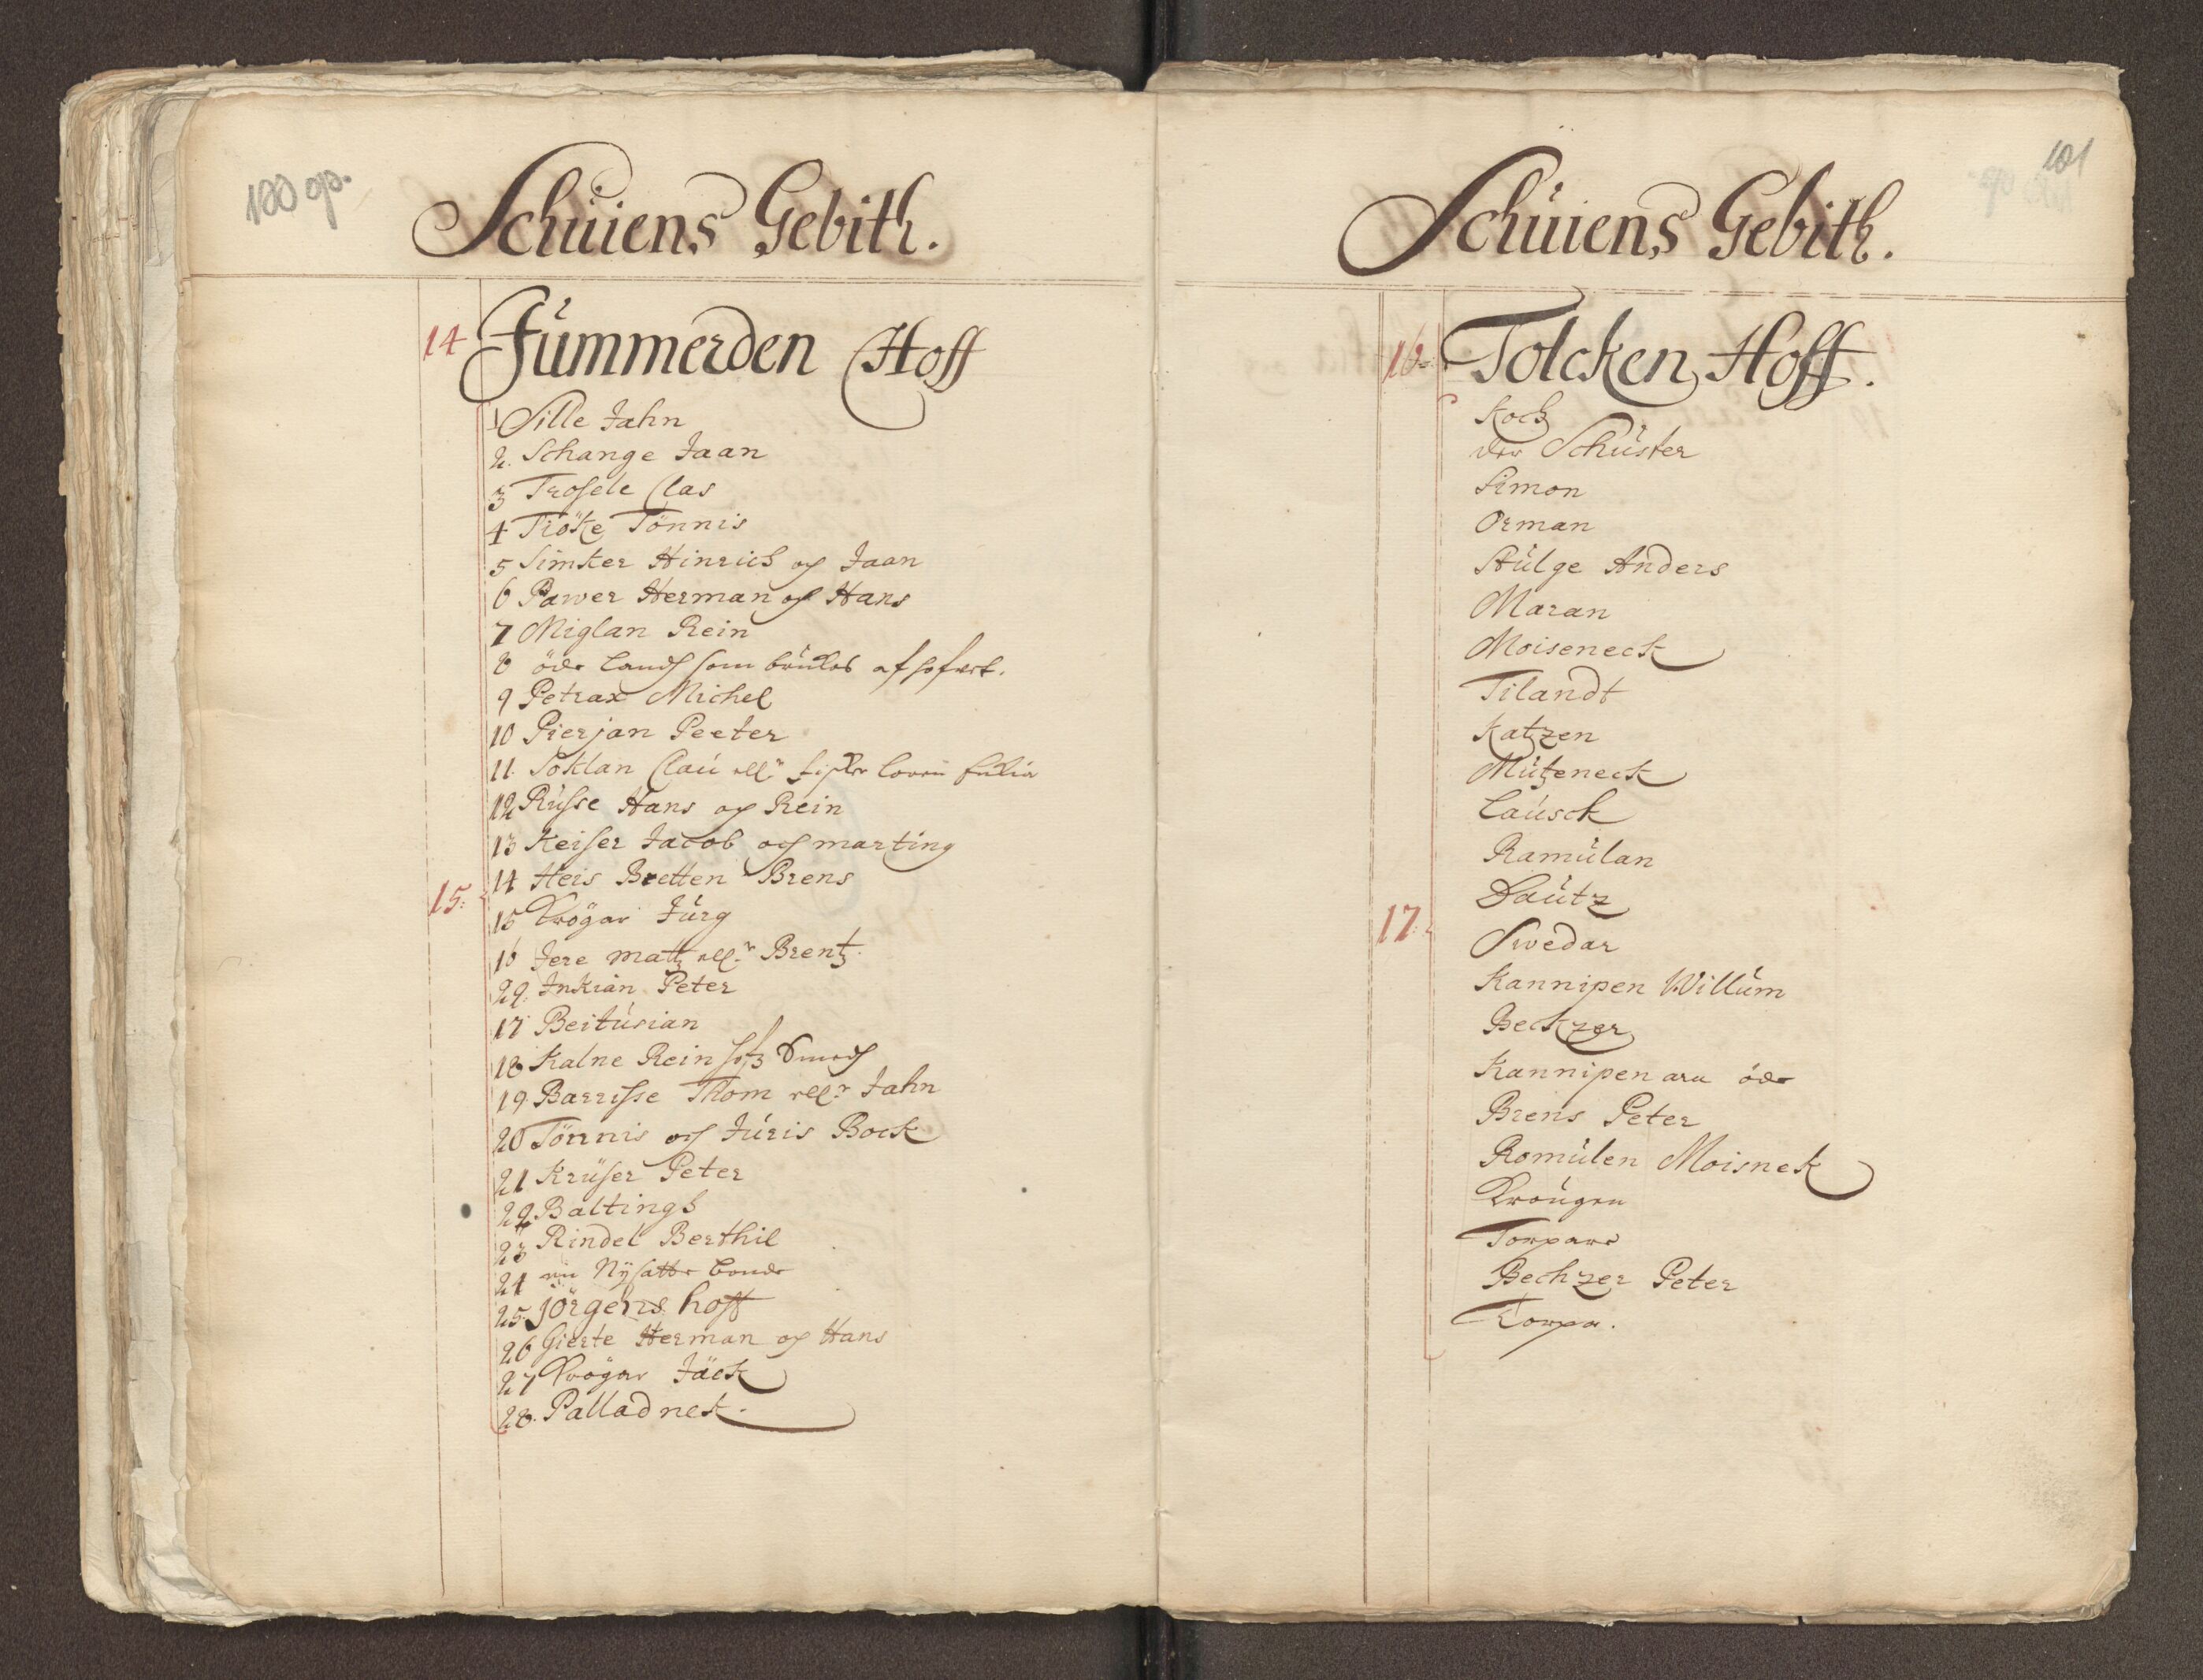 100 op.
Schüiens Gebith.
14 Jümmerden Hoff
1 Sille Jahn
2. Schange Jaan
3 Trosele Clas
4 Tröke Tönnis
5 Simker Hinrich og Jaan
6 Pawer Herman og Hans
7 Miglan Rein
8 öde landh som brukas af hofwet.
9 Petrax Michel
10 Pierjan Peeter
11. Soklan Claú ell.r
12 Rüsse Hans og Rein
13 Keiser Jacob och marting
14 Heis Bretten Brens
15:
15 Krögar Jürg
16 Jere Matz ell.r Brentz.
29. Inkian Peter
17 Beitúsian
18 Kalne Rein hofz Smedh
19. Barrisse Thom ell.r Jahn
20 Tönnis och Júris Bock
21 Krüser Peter
22 Baltings
23 Rindel Berthil
24 en Nÿsatte bonde
25. Jörgens hoff
26 Gierte Herman og Hans
27 Krögar Jäck
28. Palladnek.
101
Schüiens Gebith.
16. Tolcken Hoff.
Koch
der Schüster
Simon
Orman
Stülge Anders
Maran
Moiseneck
Tilandt
Katzen
Mützeneck
Laúsck
Ramülan
Daütz
17.
Swedar
Kannipen Willúm
Beckzer
Kannipen ara öde
Brens Peter
Romülen Moisnek
Kroúgen
Torpare
Bechzer Peter
Torpa.